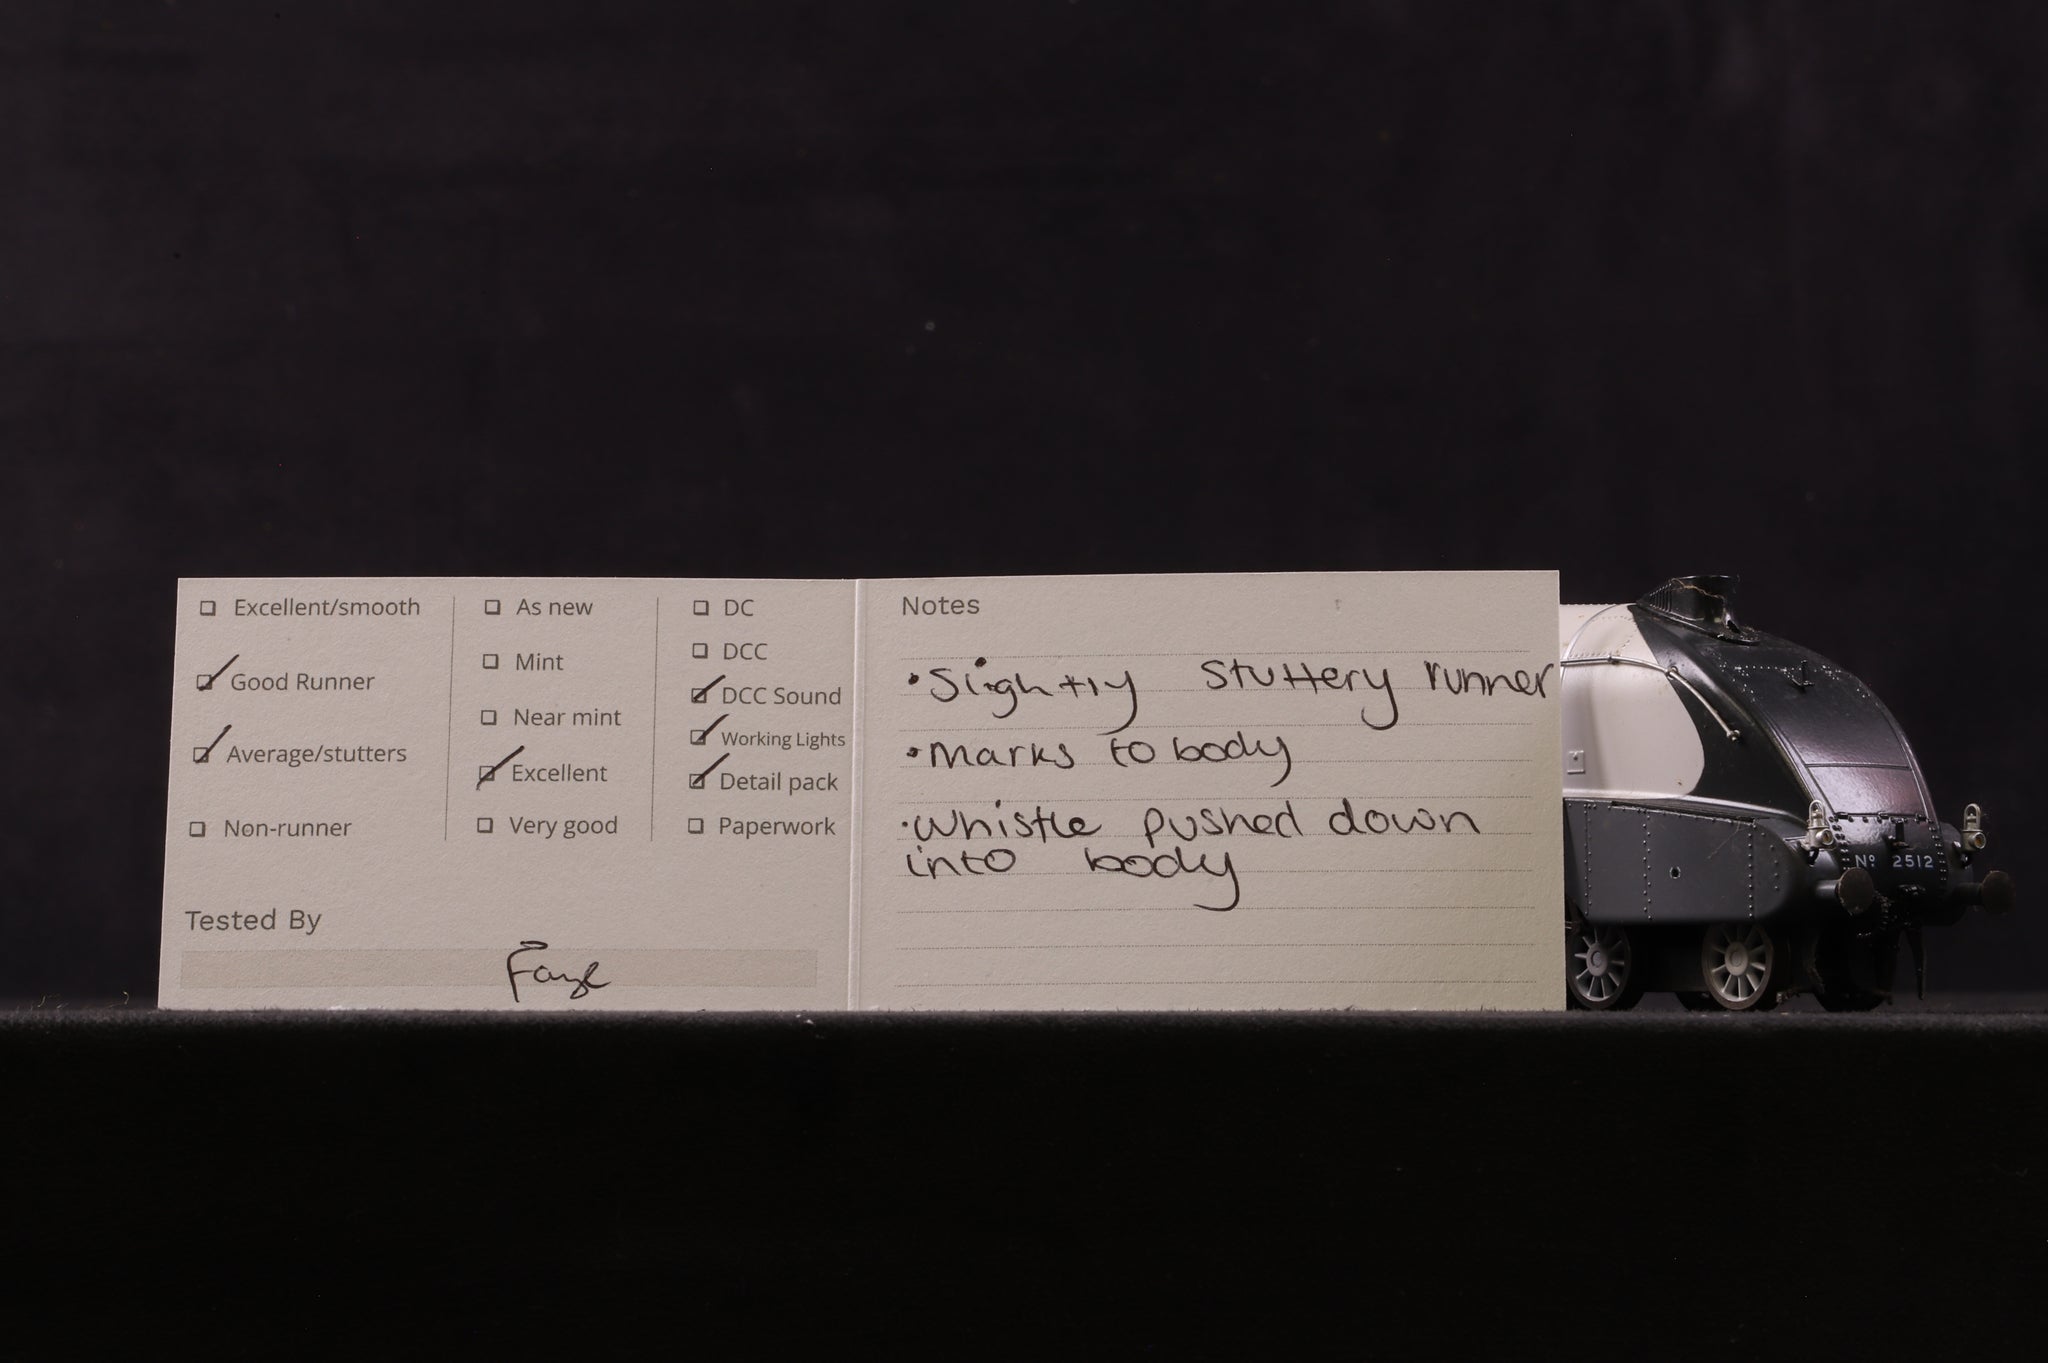 Excellent/smooth
Good Runner
Average/stutters
Non-runner
As new
Mint
Near mint
Excellent
Very good
DC
DCC
DCC Sound
Working Lights
Detail pack
Paperwork
Tested By
Faye
Notes
• Slightly stuttery runner
• Marks to body
• Whistle pushed down
into body
Nº 2512